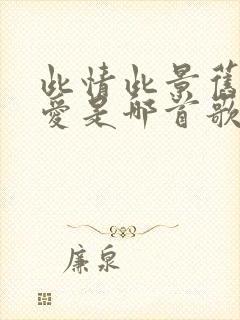 此情此景舊
愛是那首歌
廉泉